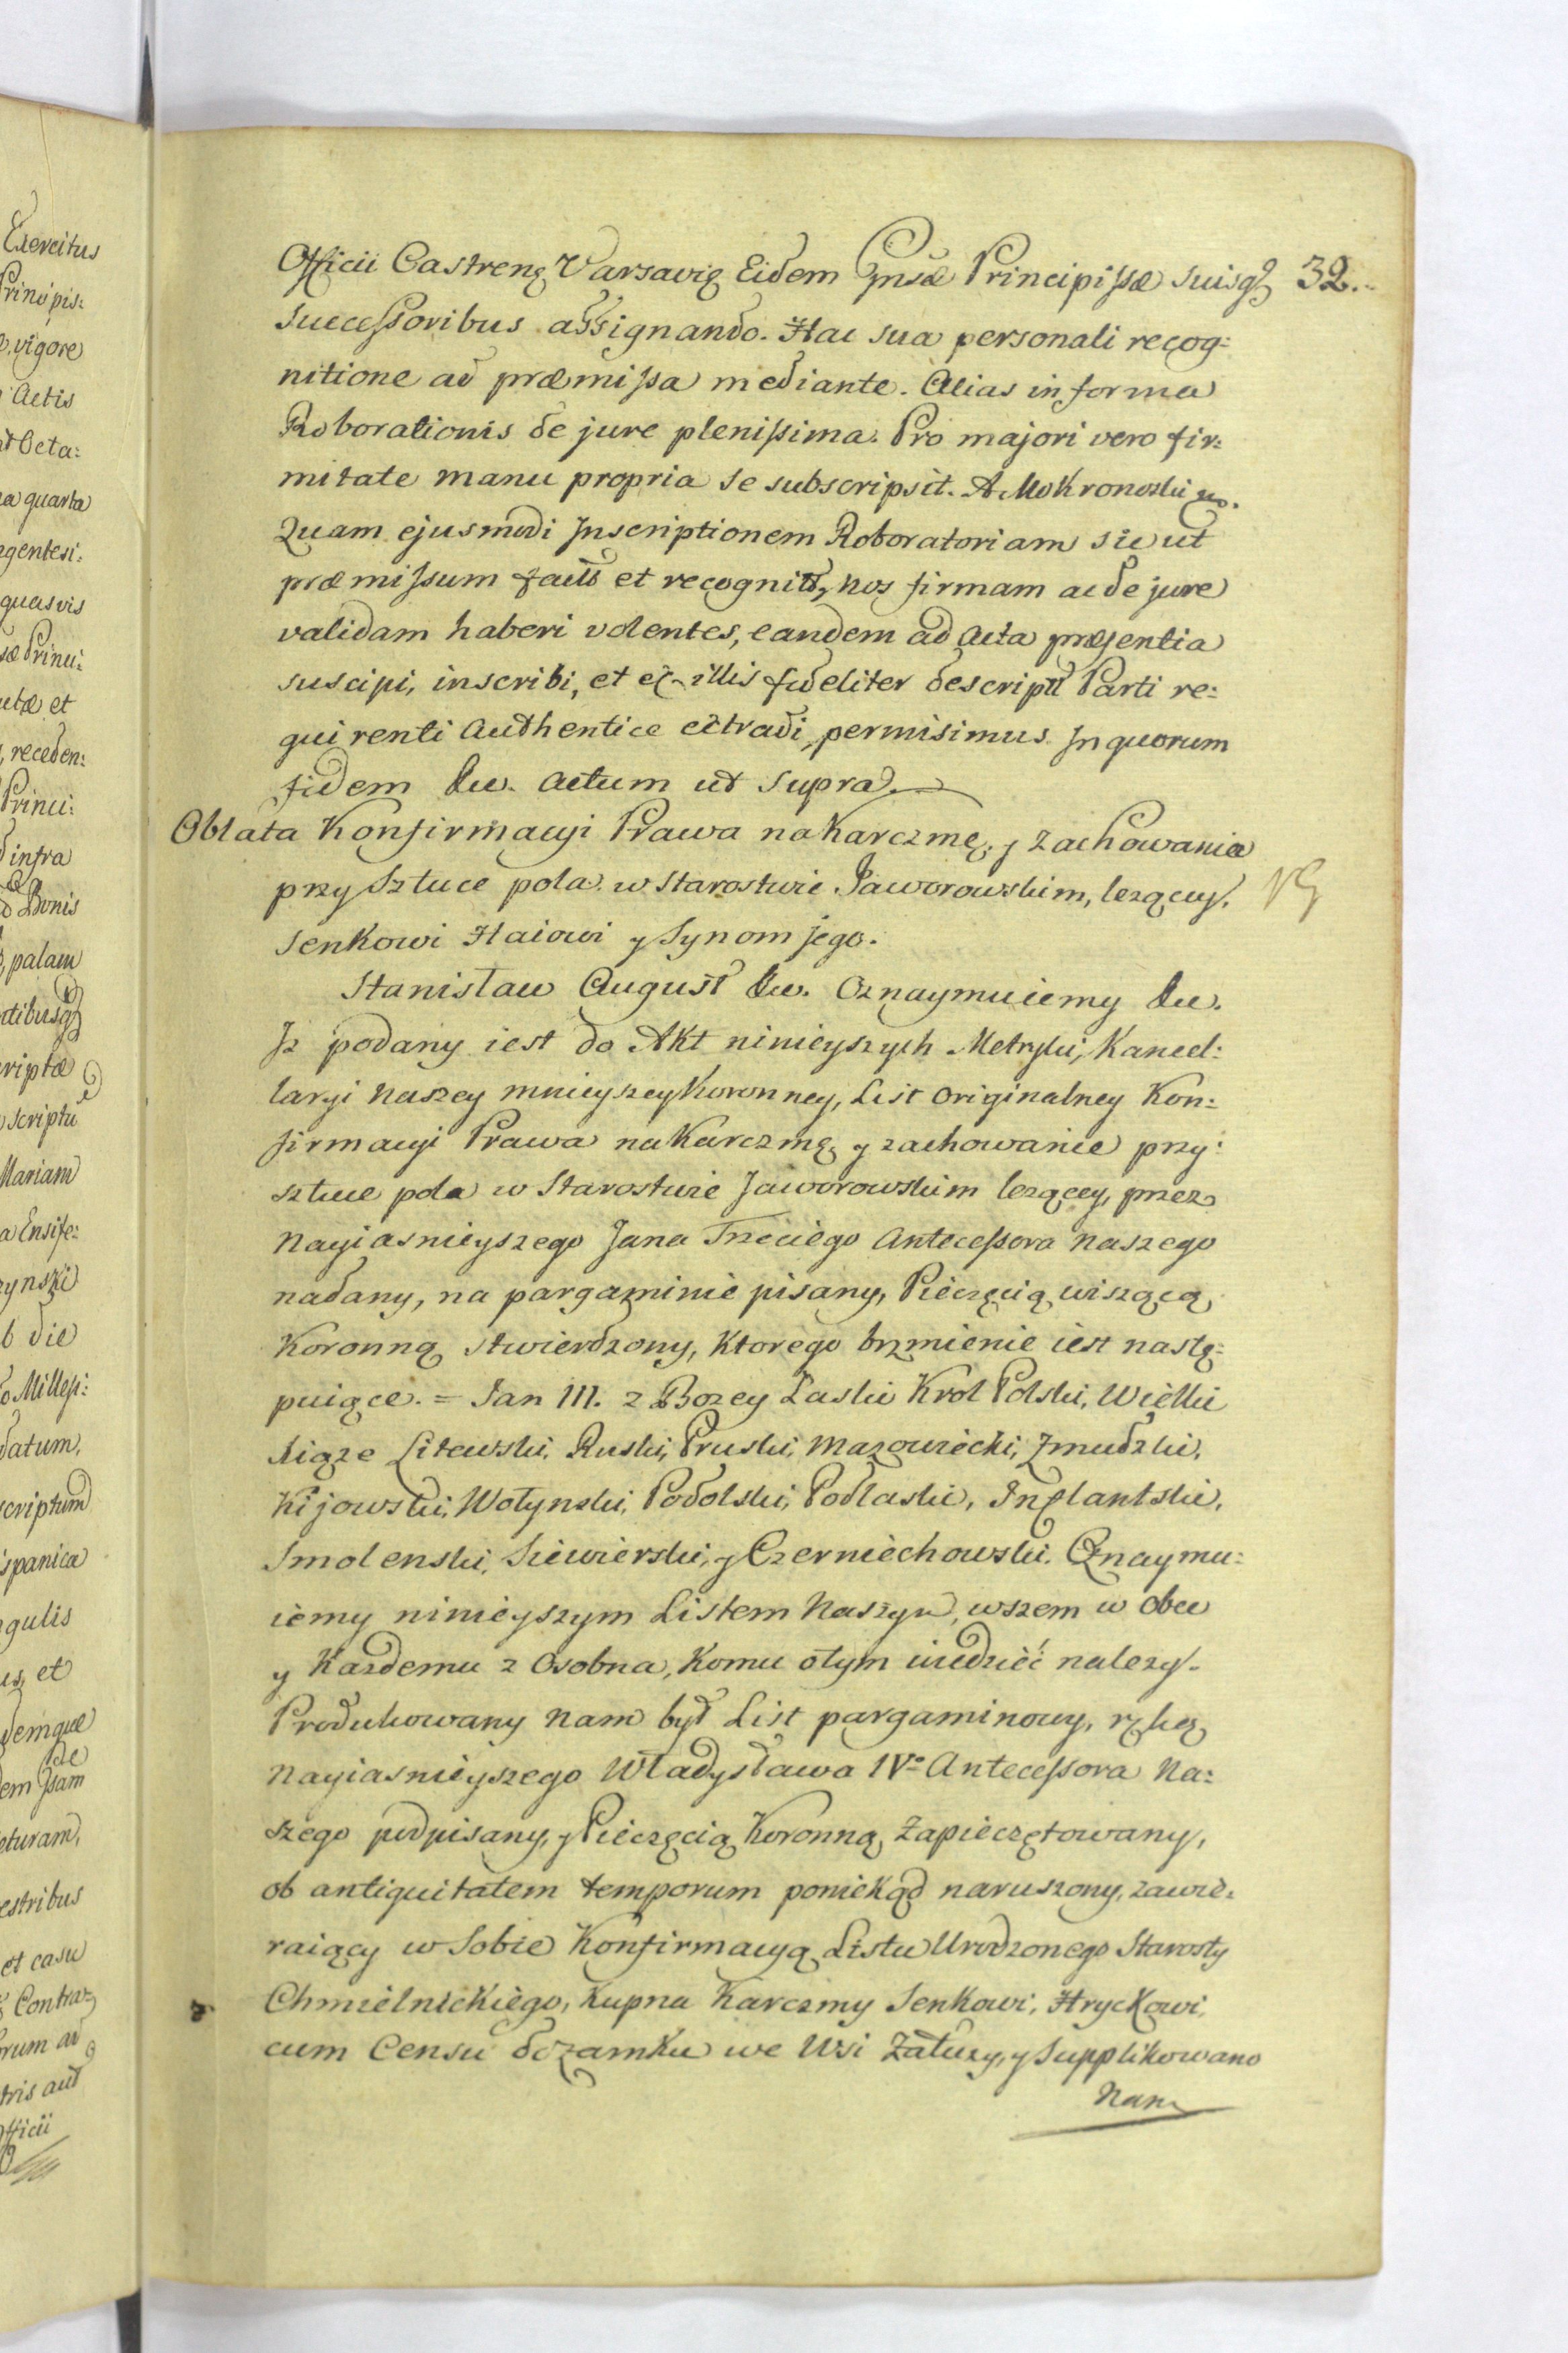 Officii Castrenę Varsavię Eidem Gnsæ Principissæ suisqȝ 32.
Successoribus assignando. Hac sua personali recog:
nitione ad præmissa mediante. Alias in forma
Roborationis de jure plenissima. Pro majori vero fir:
mitate manu propria se subscripsit. A Mokronoski
Quam ejusmodi Inscriptionem Roboratoriam sicut
præmissum factã et recognitã, nos firmam ac de jure
validam haberi volentes, eandem ad Acta præsentia
suscipi, inscribi, et ex illis fideliter descriptã Parti re:
quirenti Authentice extradi, permisimus. In quorum
fidem &c. Actum ut Supra.
Oblata Konfirmacyi Prawa na Karczmę, y Zachowania
przy Sztuce pola w Starostwie Jaworowskim, lezący,
Senkowi Haiowi y Synom jego.
Stanisław August &c. Oznaymuiemy &c.
Iz podany iest do Akt ninieyszych Metryki, Kancel:
laryi Naszey mnieyszey Koronney, List Originalney Kon:
firmacyi Prawa na Karczmę, y zachowanie przy
sztuce pola w Starostwie Jaworowskim lezącey, przez
Nayiasnieyszego Jana Trzeciego Antecessora Naszego
nadany, na pargaminie pisany, Pieczęcią wiszącą
Koronną stwierdzony, Ktorego brzmienie iest nastę:
puiące. = Jan III. z Bozey Łaski Krol Polski, Wielki
Xiąze Litewski, Ruski, Pruski, Mazowiecki, Zmudzki,
Kijowski, Wołynski, Podolski, Podlaski, Inflantski,
Smolenski, Siewierski, y Czerniechowski. Oznaymu:
iemy ninieyszym Listem Naszym, wszem w obec
y Kazdemu z Osobna, Komu o tym wiedzieć nalezy.
Produkowany Nam był List pargaminowy, ręką
Nayiasnieyszego Władysława IVº Antecessora Na:
szego podpisany, y Pieczęcią Koronną Zapieczętowany,
ob antiquitatem temporum poniekąd naruszony, zawie:
raiący w Sobie Konfirmacyą Listu Urodzonego Starosty
Chmielnickiego, Kupna Karczmy Senkowi, Hryckowi,
cum Censu do Zamku we Wsi Załuzy, y Supplikowano
Nam